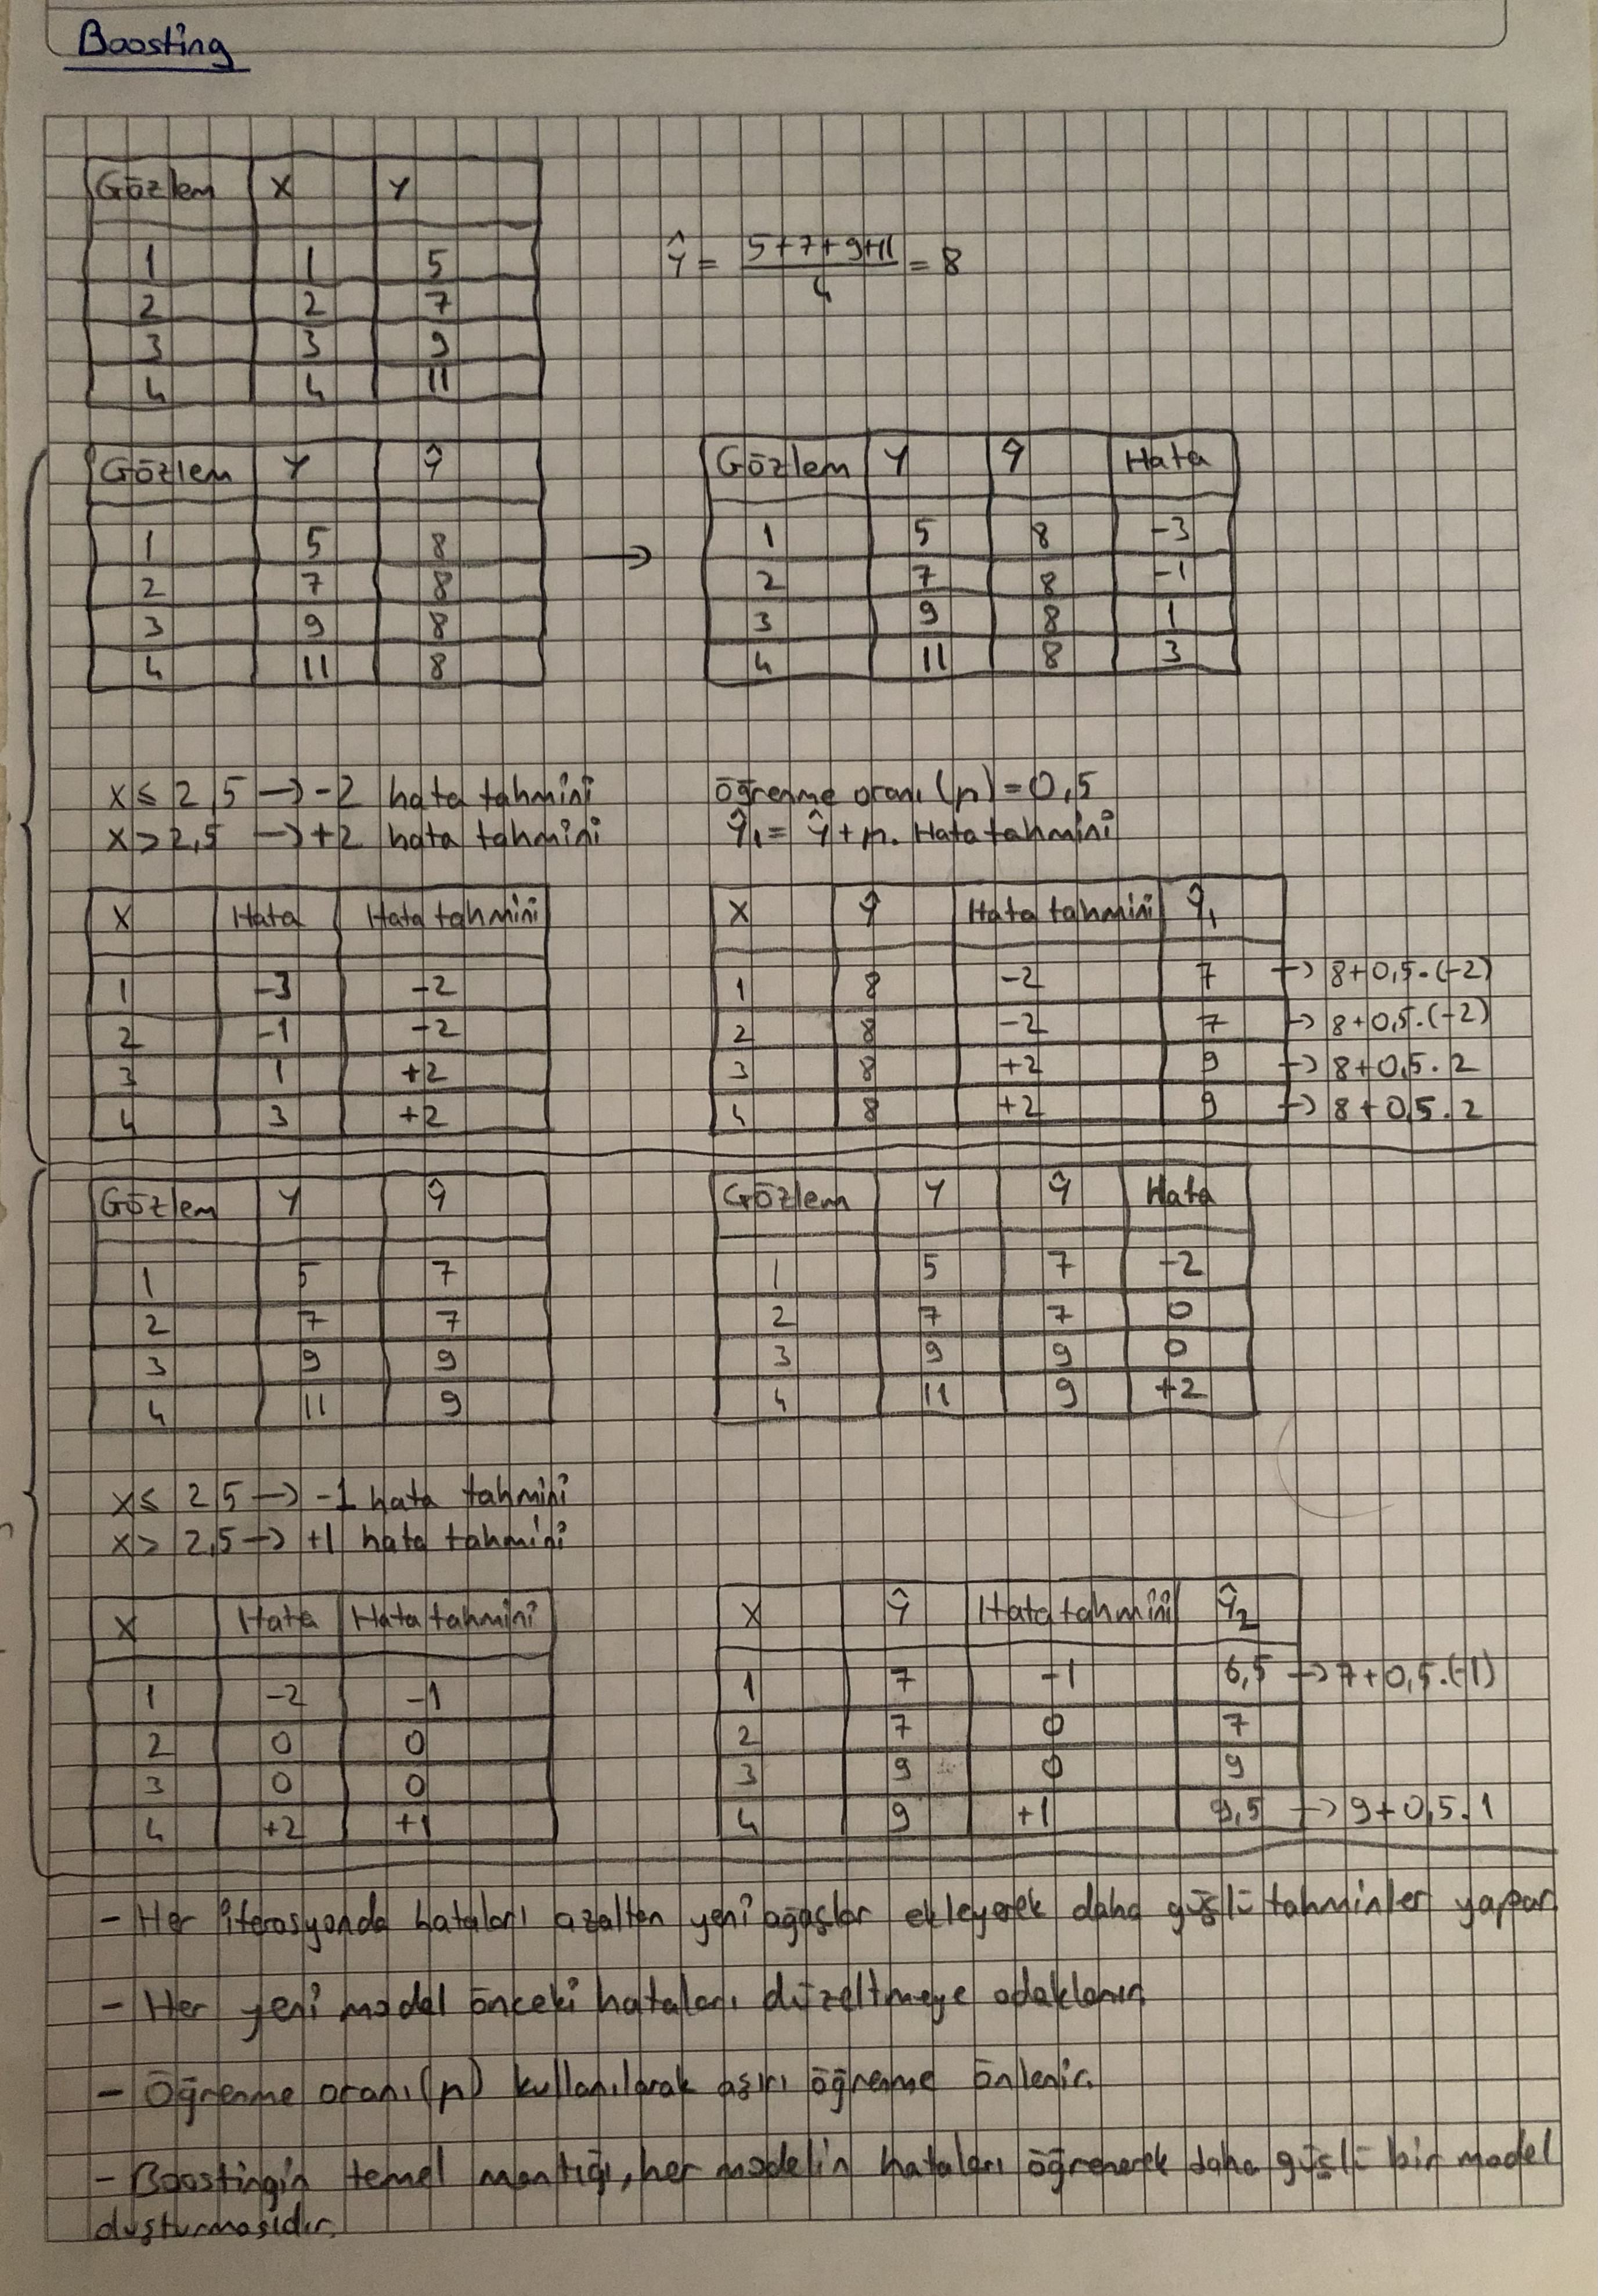 Boosting
Gözlem X Y
1 1 5
2 2 7
3 3 9
4 4 11
Ŷ = 5+7+9+11 / 4 = 8
Gözlem Y Ŷ
1 5 8
2 7 8
3 9 8
4 11 8
→
Gözlem Y Ŷ Hata
1 5 8 -3
2 7 8 -1
3 9 8 1
4 11 8 3
X ≤ 2,5 → -2 hata tahmini
X > 2,5 → +2 hata tahmini
öğrenme oranı (μ) = 0,5
Ŷ₁ = Ŷ + μ. Hata tahmini
X Hata Hata tahmini
1 -3 -2
2 -1 -2
3 1 +2
4 3 +2
X Ŷ Hata tahmini Ŷ₁
1 8 -2 7 → 8+0,5.(-2)
2 8 -2 7 → 8+0,5.(-2)
3 8 +2 9 → 8+0,5.2
4 8 +2 9 → 8+0,5.2
Gözlem Y Ŷ
1 5 7
2 7 7
3 9 9
4 11 9
Gözlem Y Ŷ Hata
1 5 7 -2
2 7 7 0
3 9 9 0
4 11 9 +2
X ≤ 2,5 → -1 hata tahmini
X > 2,5 → +1 hata tahmini
X Hata Hata tahmini
1 -2 -1
2 0 0
3 0 0
4 +2 +1
X Ŷ Hata tahmini Ŷ₂
1 7 -1 6,5 → 7+0,5.(-1)
2 7 0 7
3 9 0 9
4 9 +1 9,5 → 9+0,5.1
- Her iterasyonda hataları azaltan yeni ağaçlar ekleyerek daha güçlü tahminler yapar.
- Her yeni model önceki hataları düzeltmeye odaklanır.
- Öğrenme oranı (μ) kullanılarak aşırı öğrenme önlenir.
- Boostingin temel mantığı, her modelin hataları öğrenerek daha güçlü bir model
oluşturmasıdır.